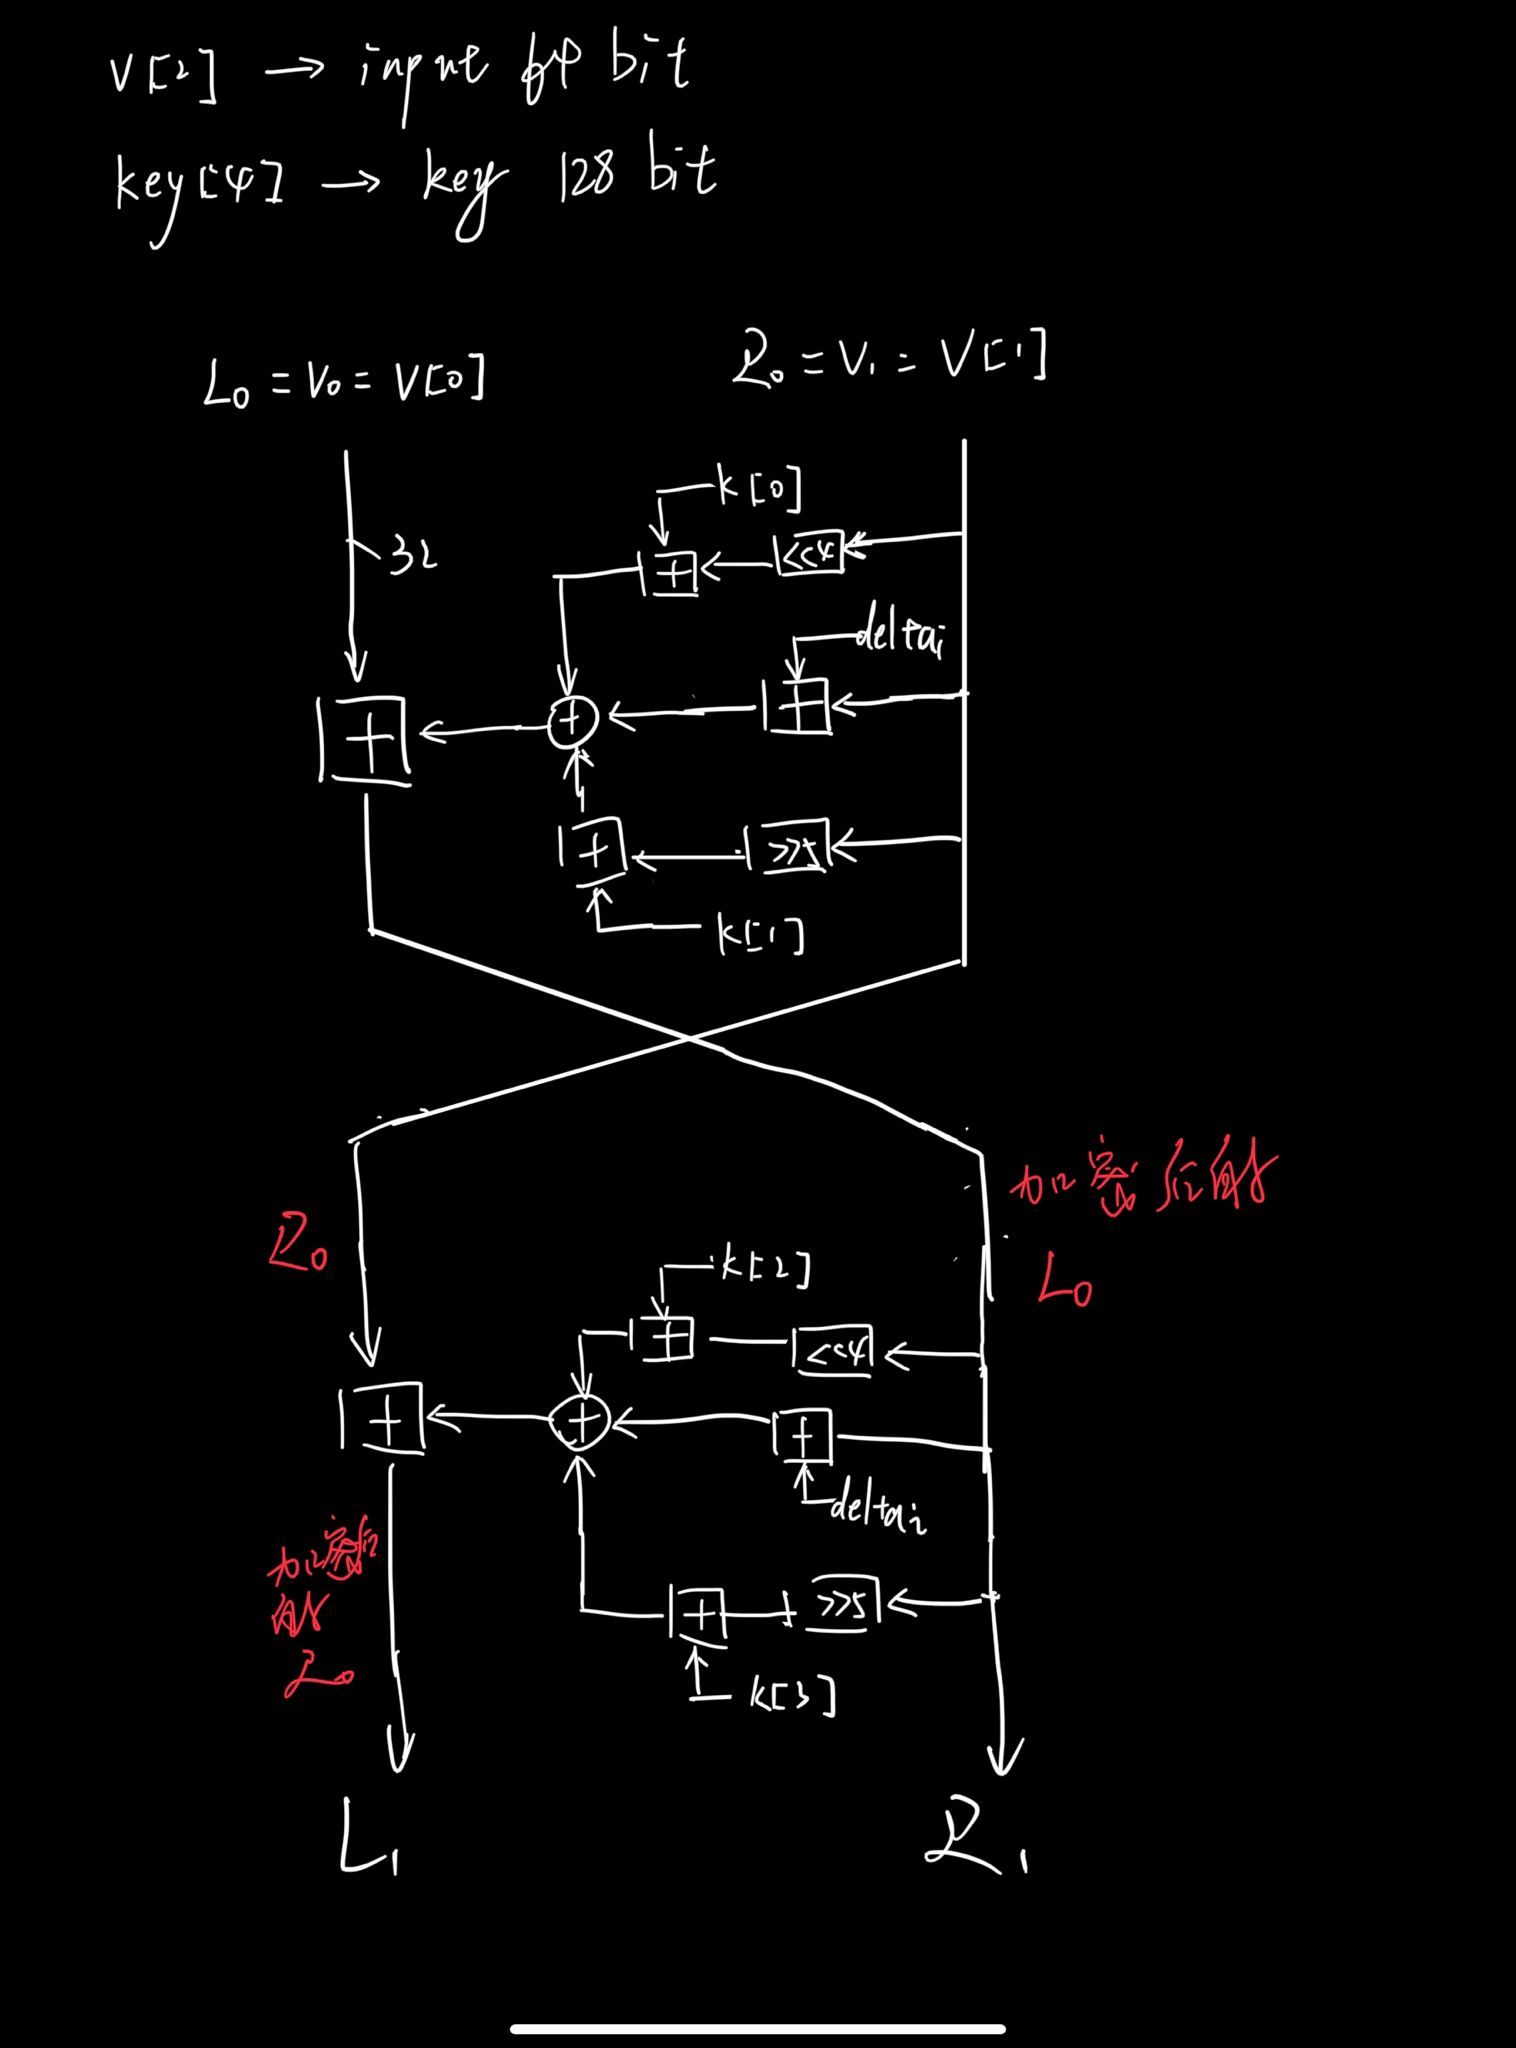 V[2] → input 64 bit
key[4] → key 128 bit
L₀ = V₀ = V[0]
R₀ = V₁ = V[1]
k[0]
32
<<4
+
deltai
+
+
+
+
>>5
k[1]
加密后的
R₀
L₀
k[2]
+
<<4
+
+
+
deltai
加密后
的
R₀
+
>>5
k[3]
L₁
R₁